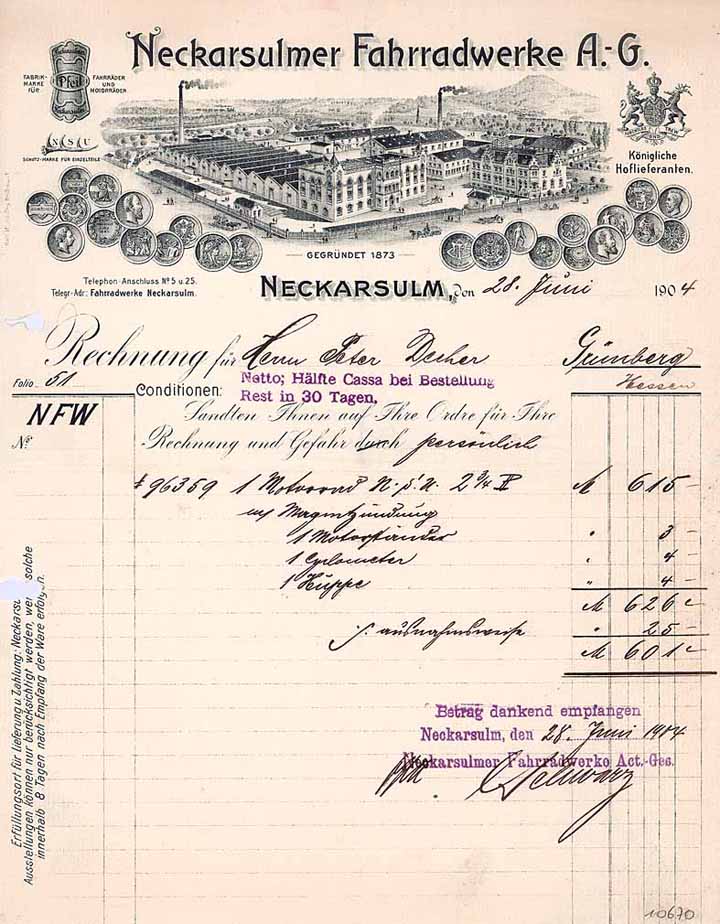 Neckarsulmer Fahrradwerke A.-G.
FABRIK-
MARKE
FÜR
Pfeil
FAHRRÄDER
UND
MOTORRÄDER
NSU
SCHUTZ-MARKE FÜR EINZELTEILE
Königliche
Hoflieferanten.
GEGRÜNDET 1873
Telephon-Anschluss Nº 5 u. 25.
Telegr.-Adr.: Fahrradwerke Neckarsulm.
NECKARSULM, den 28. Juni 1904
Rechnung für Herrn Peter Decher Grünberg
Hessen
Folio 51
Conditionen: Netto; Hälfte Cassa bei Bestellung
Rest in 30 Tagen.
NFW
Sandten Ihnen auf Ihre Ordre für Ihre
Nº
Rechnung und Gefahr durch persönlich
96359 1 Motorrad N.S.U. 2 3/4 M 615 –
Magnetzündung
1 Motorständer " 3 –
1 Cyclometer " 4 –
1 Huppe " 4 –
M 626
ausnahmsweise " 25 –
M 601
Betrag dankend empfangen
Neckarsulm, den 28. Juni 1904
Neckarsulmer Fahrradwerke Act.-Ges.
Schwarz
Erfüllungsort für Lieferung u. Zahlung: Neckarsu
Ausstellungen können nur berücksichtigt werden, wen solche
innerhalb 8 Tagen nach Empfang der Ware erfolg n.
10670